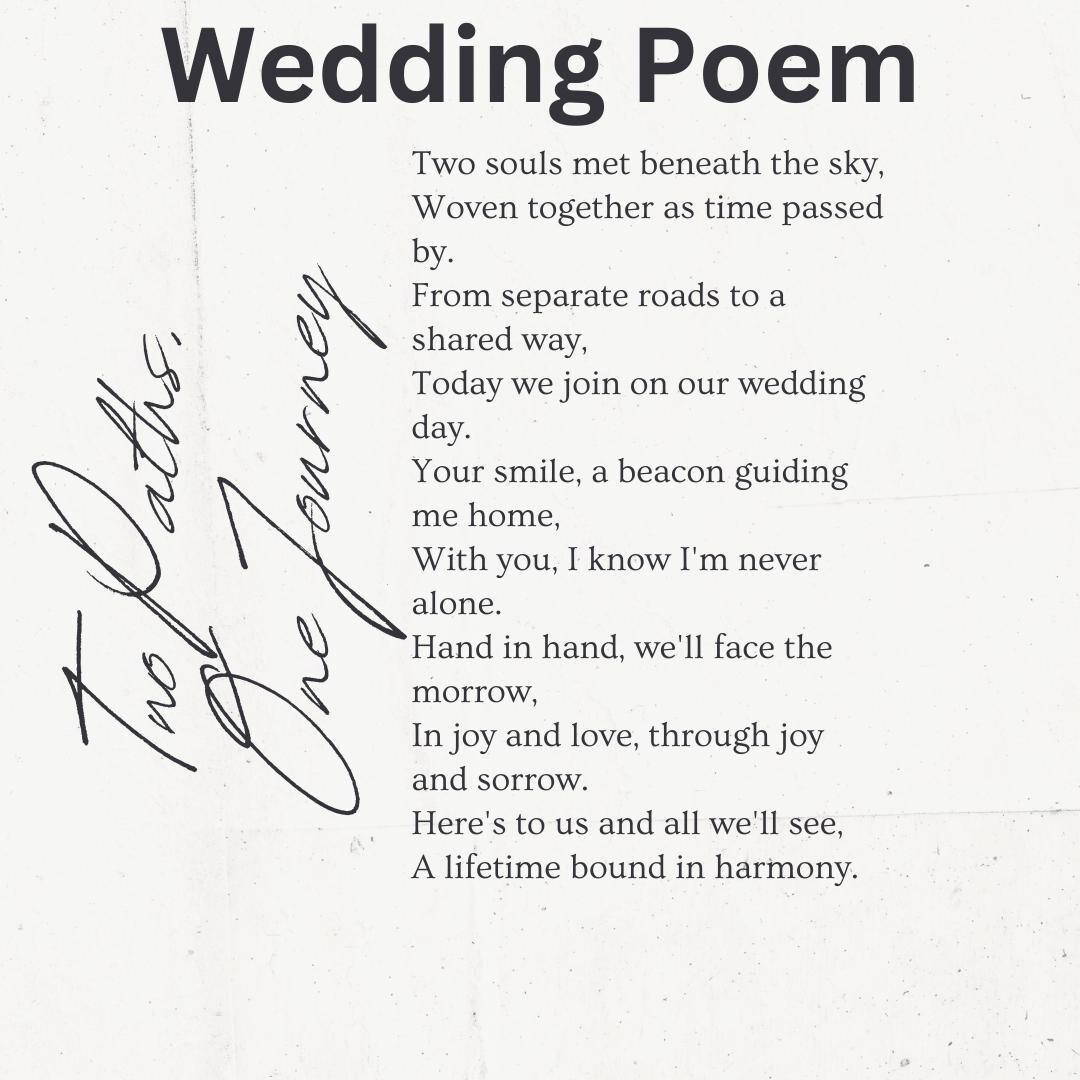 Wedding Poem
Two Paths,
One Journey
Two souls met beneath the sky,
Woven together as time passed
by.
From separate roads to a
shared way,
Today we join on our wedding
day.
Your smile, a beacon guiding
me home,
With you, I know I'm never
alone.
Hand in hand, we'll face the
morrow,
In joy and love, through joy
and sorrow.
Here's to us and all we'll see,
A lifetime bound in harmony.